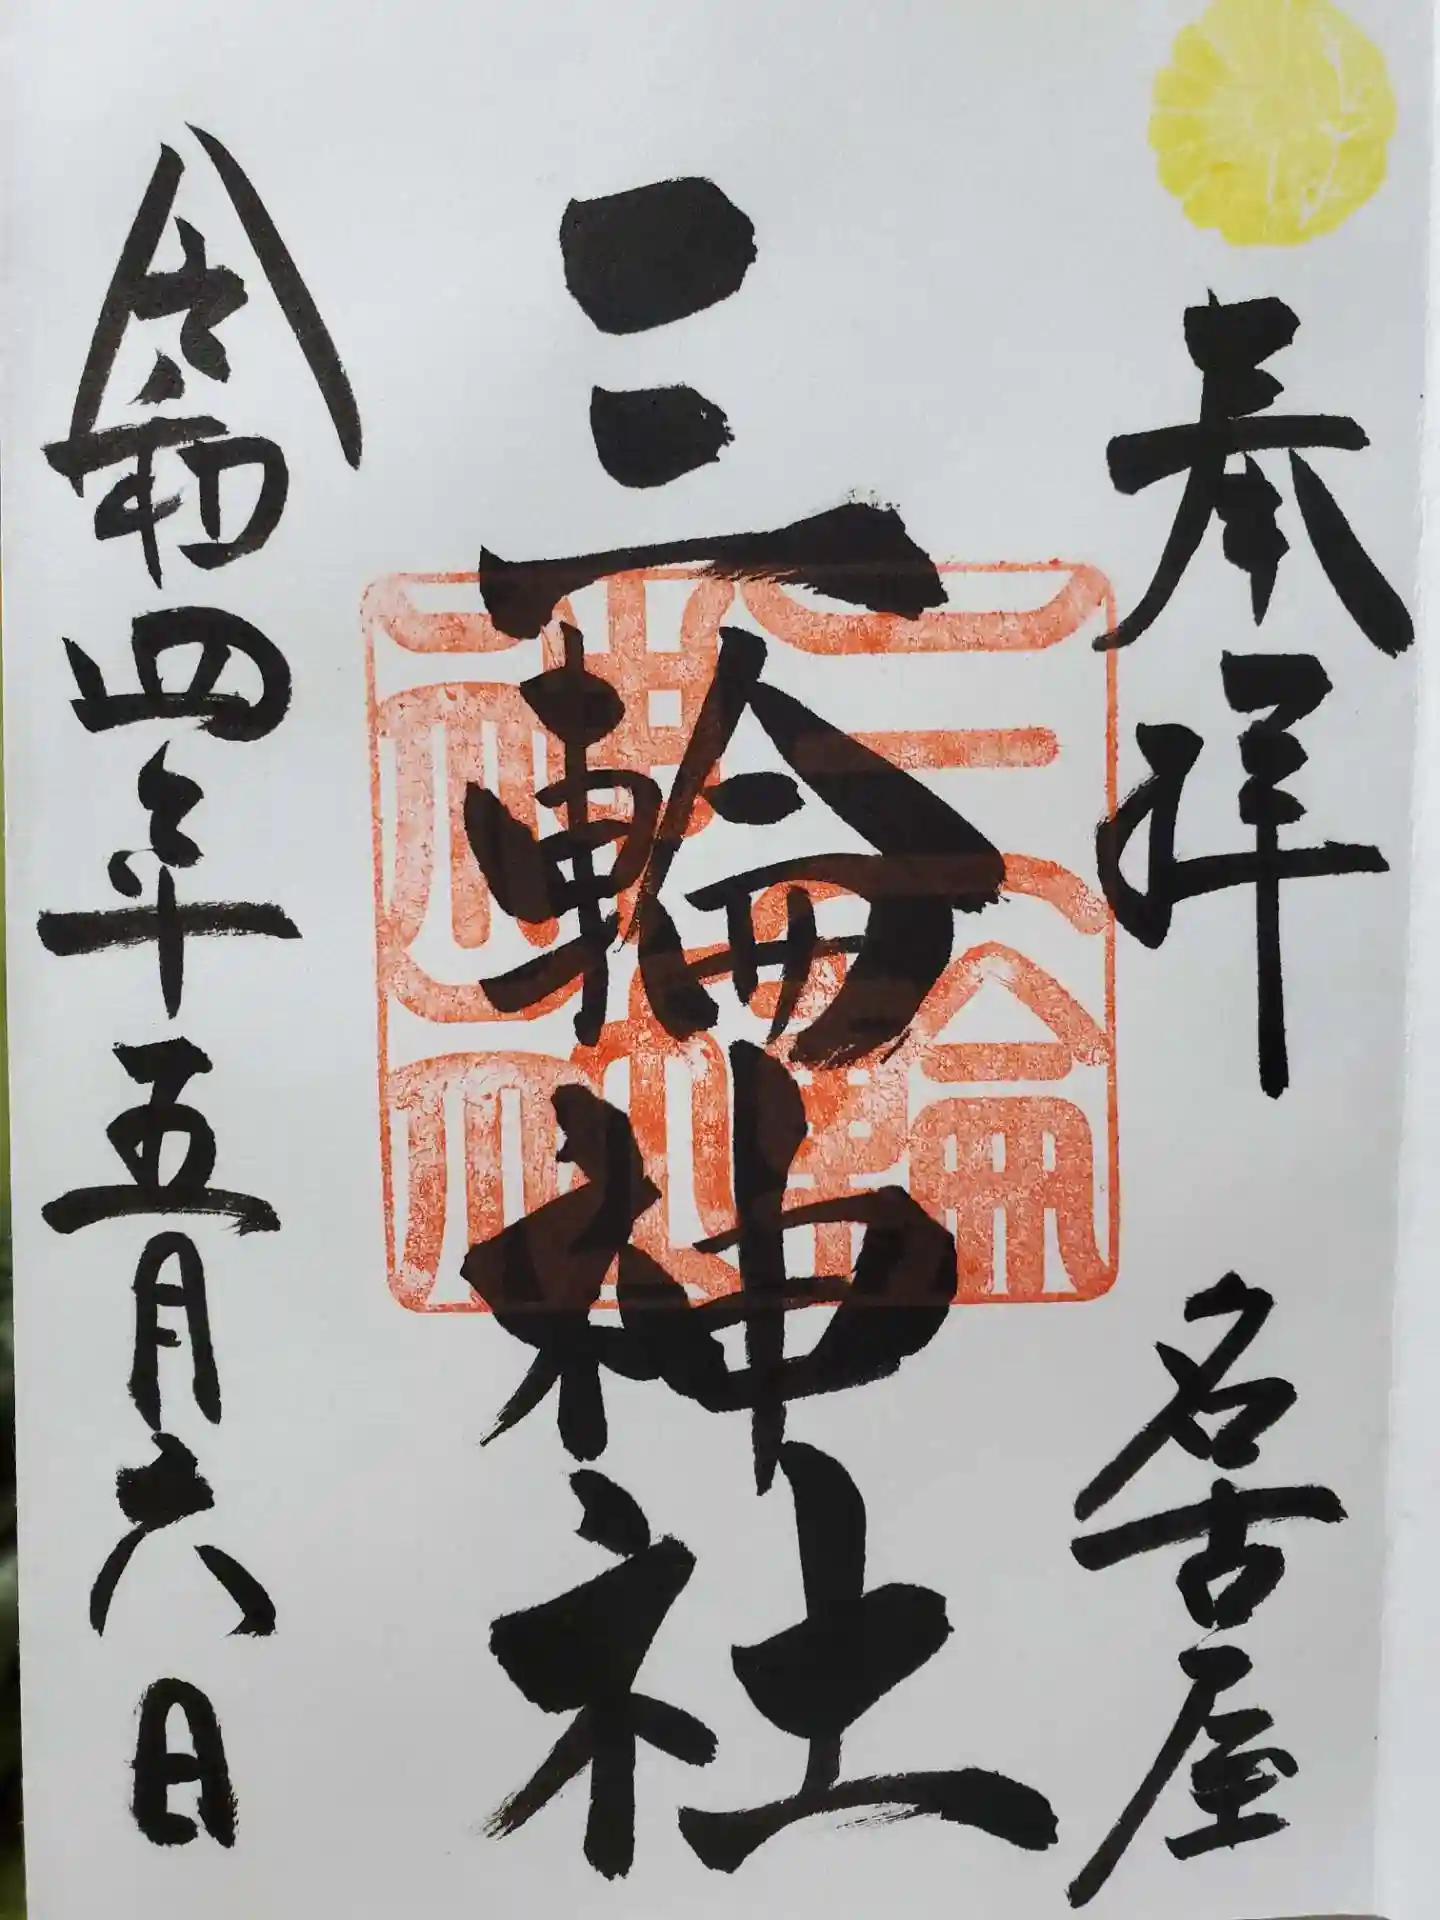 奉拝 名古屋
三輪神社
令和四年五月六日
三輪神社